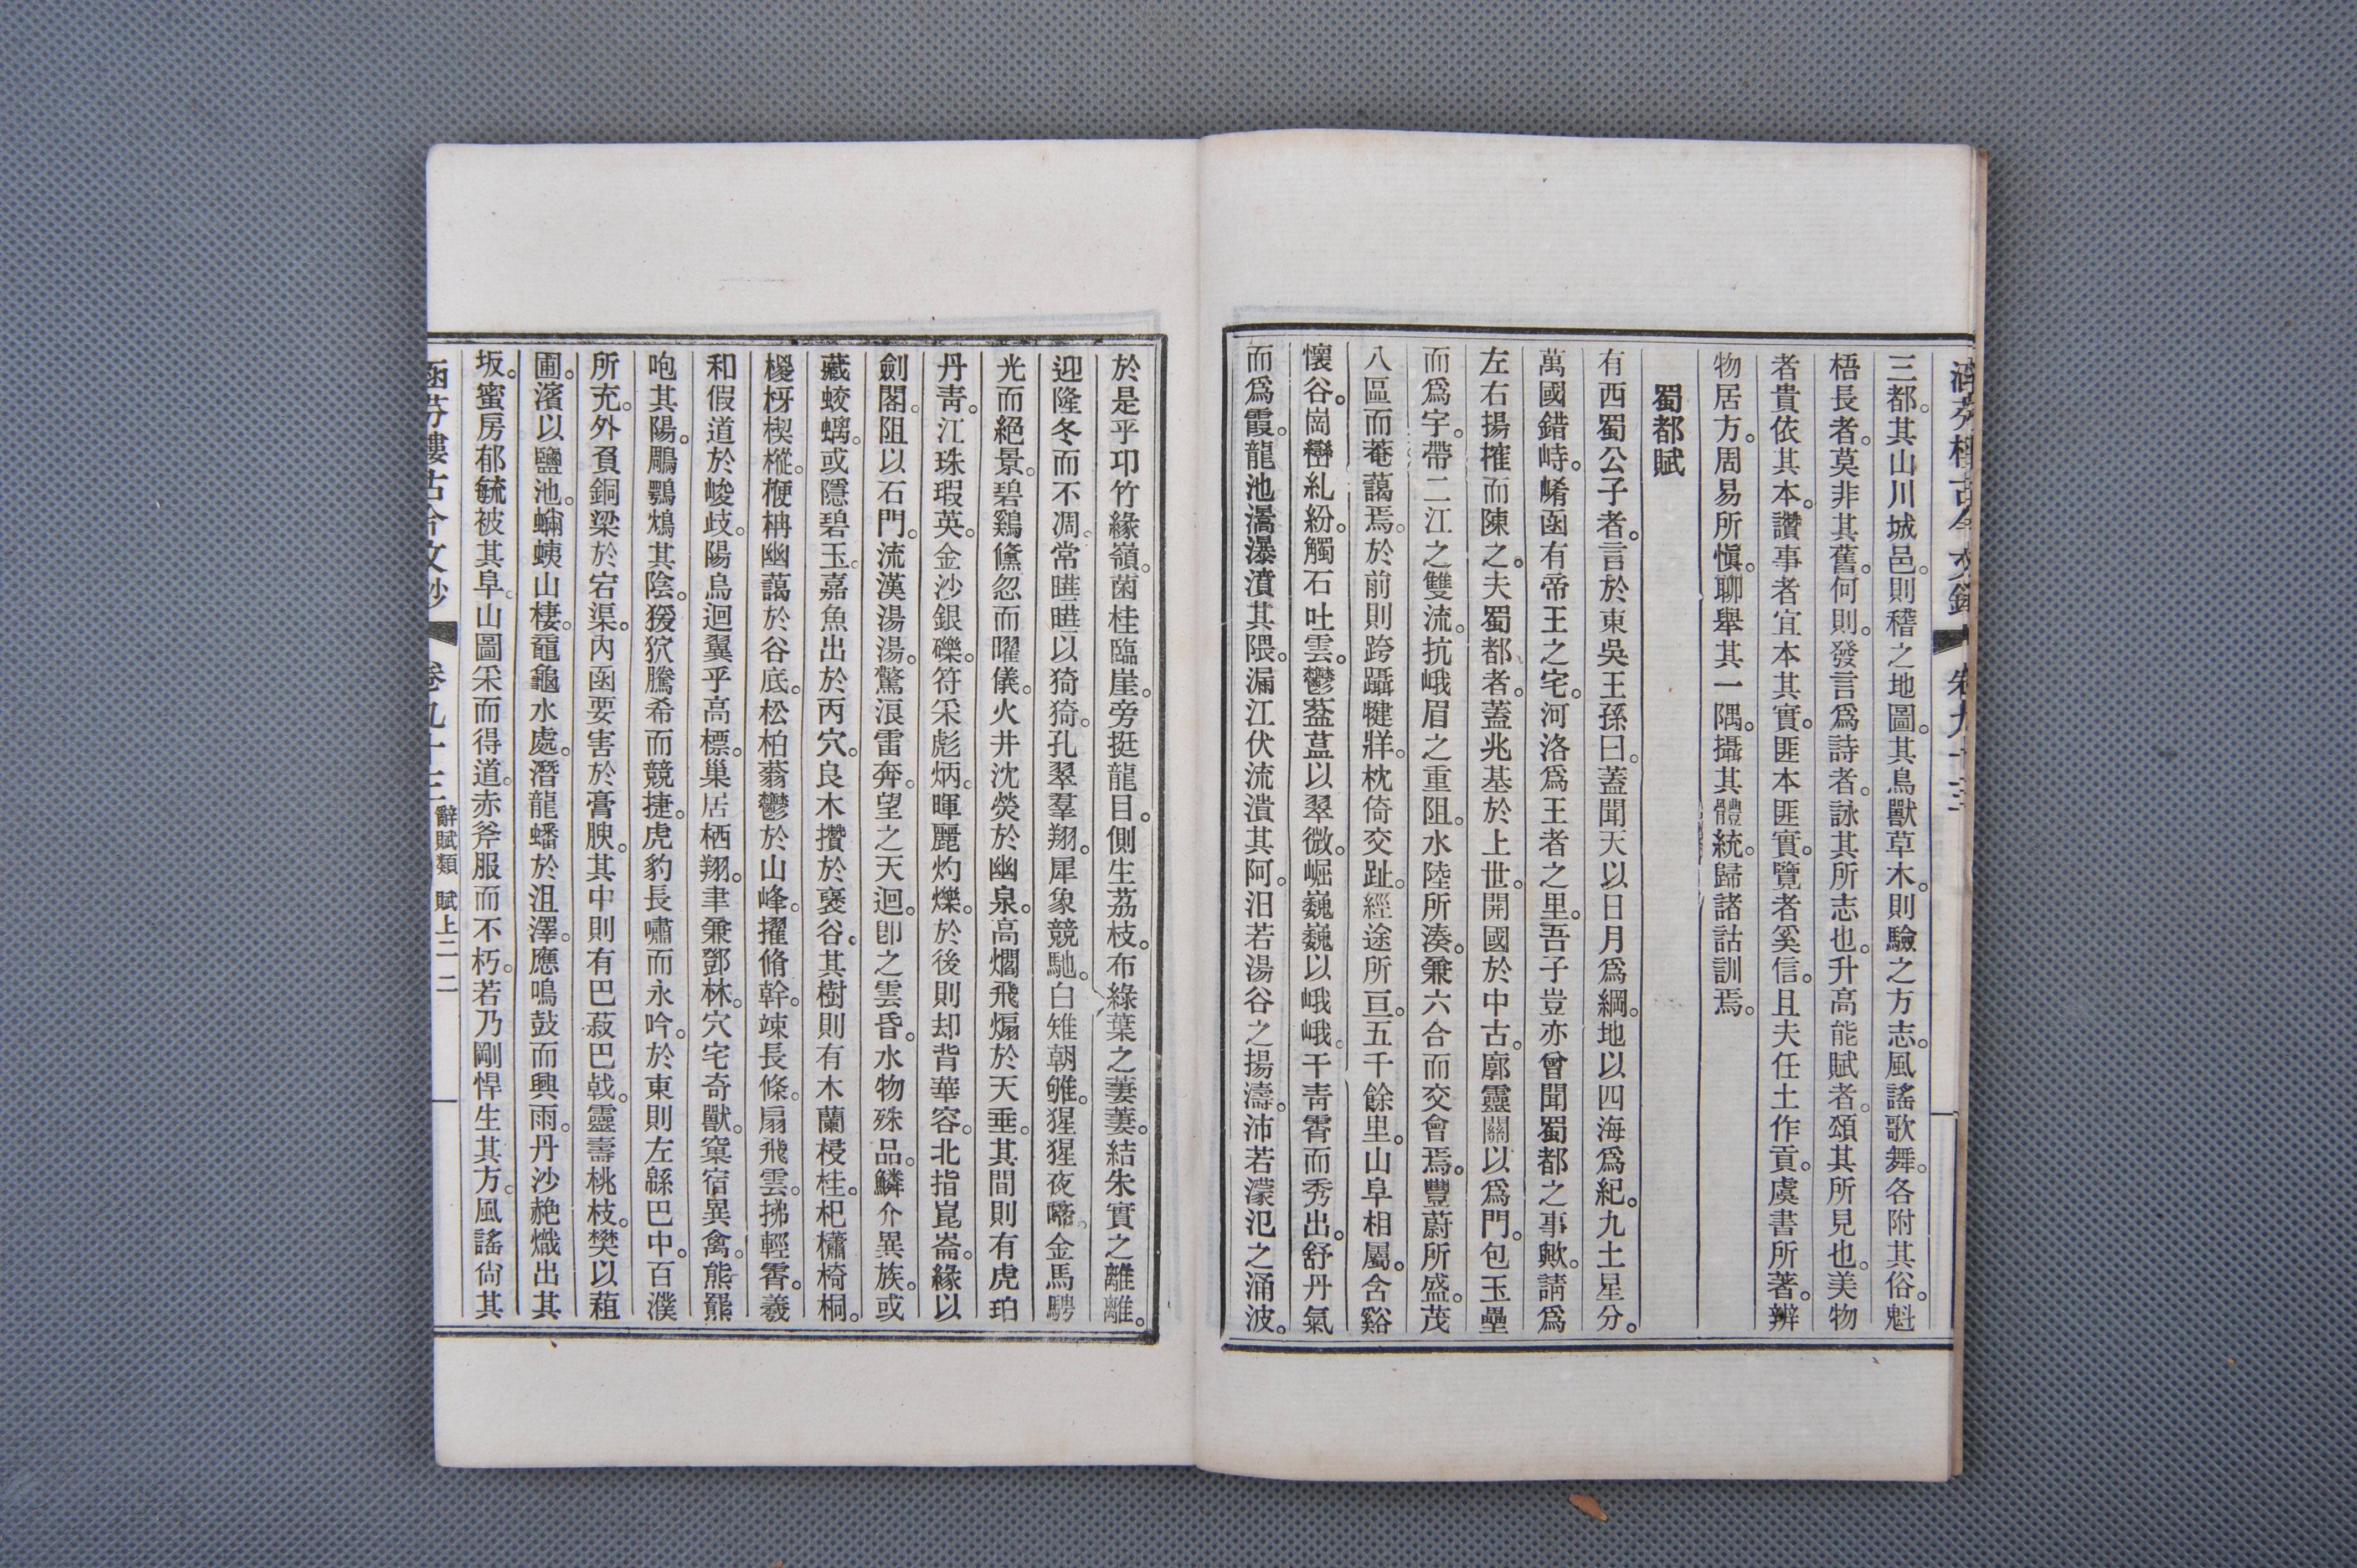 三都。其山川城邑。則稽之地圖。其鳥獸草木。則驗之方志。風謠歌舞。各附其俗。魁
梧長者。莫非其舊。何則。發言爲詩者。詠其所志也。升高能賦者。頌其所見也。美物
者貴依其本。讚事者宜本其實。匪本匪實。覽者奚信。且夫任土作貢。虞書所著。辨
物居方。周易所愼。聊舉其一隅。攝其體統。歸諸詁訓焉。
蜀都賦
有西蜀公子者。言於東吳王孫曰。蓋聞天以日月爲綱。地以四海爲紀。九土星分。
萬國錯峙。崤函有帝王之宅。河洛爲王者之里。吾子豈亦曾聞蜀都之事歟。請爲
左右揚搉而陳之。夫蜀都者。蓋兆基於上世。開國於中古。廓靈關以爲門。包玉壘
而爲宇。帶二江之雙流。抗峨眉之重阻。水陸所湊。兼六合而交會焉。豐蔚所盛。茂
八區而菴藹焉。於前則跨躡犍牂。枕倚交趾。經途所亘。五千餘里。山阜相屬。含谿
懷谷。崗巒糺紛。觸石吐雲。鬱葢葐以翠微。崛巍巍以峨峨。干靑霄而秀出。舒丹氣
而爲霞。龍池瀥瀑濆其隈。漏江伏流潰其阿。汨若湯谷之揚濤。沛若濛汜之涌波。
於是乎卭竹緣嶺。菌桂臨崖。旁挺龍目。側生荔枝。布綠葉之萋萋。結朱實之離離。
迎隆冬而不凋。常曄曄以猗猗。孔翠羣翔。犀象競馳。白雉朝雊。猩猩夜啼。金馬騁
光而絕景。碧鷄儵忽而曜儀。火井沈熒於幽泉。高爓飛煽於天垂。其間則有虎珀
丹靑。江珠瑕英。金沙銀礫。符采彪炳。暉麗灼爍。於後則却背華容。北指崑崙。緣以
劍閣。阻以石門。流漢湯湯。驚浪雷奔。望之天迴。卽之雲昏。水物殊品。鱗介異族。或
藏蛟螭。或隱碧玉。嘉魚出於丙穴。良木攢於襃谷。其樹則有木蘭梫桂。杞櫹椅桐。
椶枒楔樅。楩柟幽藹於谷底。松柏蓊鬱於山峰。擢脩幹。竦長條。扇飛雲。拂輕霄。羲
和假道於峻歧。陽烏迴翼乎高標。巢居栖翔。聿兼鄧林。穴宅奇獸。窠宿異禽。熊羆
咆其陽。鵰鶚鴥其陰。猨狖騰希而競捷。虎豹長嘯而永吟。於東則左緜巴中。百濮
所充。外負銅梁於宕渠。內函要害於膏腴。其中則有巴菽巴戟。靈壽桃枝。樊以蒩
圃。濱以鹽池。蟎蛦山棲。黿龜水處。潛龍蟠於沮澤。應鳴鼓而興雨。丹沙赩熾出其
坂。蜜房郁毓被其阜。山圖采而得道。赤斧服而不朽。若乃剛悍生其方。風謠尙其
卷九十三 辭賦類 賦上二 二